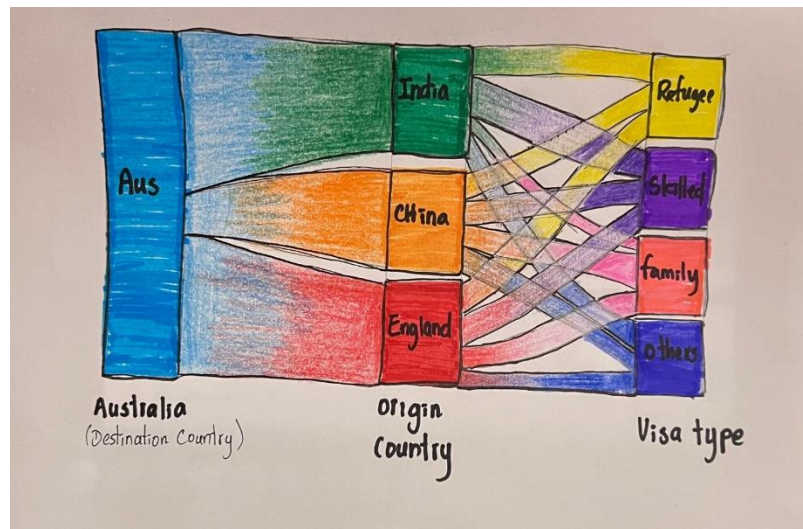 Aus
India
CHina
England
Refugee
Skalled
family
others
Australia
(Destination Country)
Origin
Country
Visa type